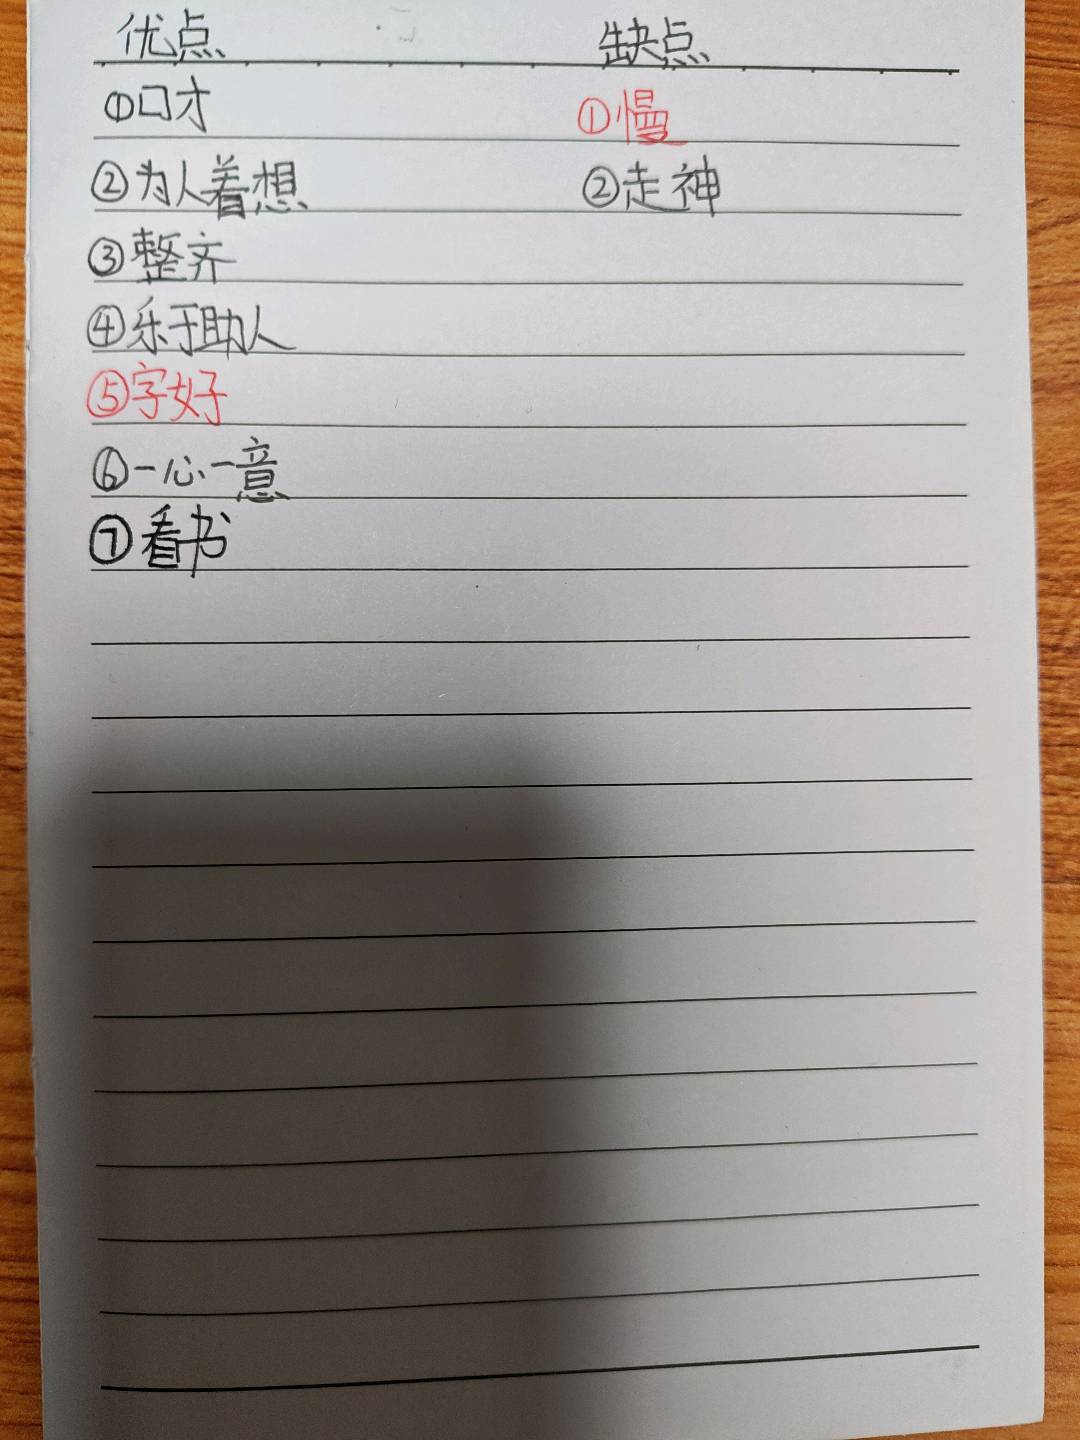 优点 缺点
①口才 ①慢
②为人着想 ②走神
③整齐
④乐于助人
⑤字好
⑥一心一意
⑦看书